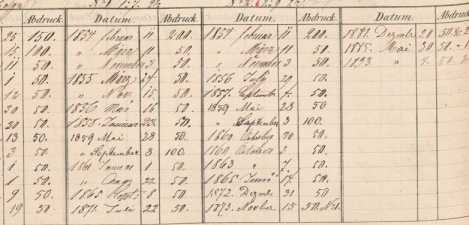 Abdruck. Datum. Abdruck. Datum. Abdruck. Datum. Abdruck.
25 150. 1854 Februar 11 200. 1854 Februar 11 200. 1881. Dezembr 20
15 100. " März 11 50. " März 11 50. 1885. Mai 30 50.
11 50. " Novembr 3 50. " Novembr 3 50. 1893 "
1 50. 1855 März 50. 1856 July 20 50.
12 50. " Nov. 15 50. 1857. Septembr 4. 50.
30 50. 1856 Mai 16 50. 1859 Mai 28 50
20 50. 1858 Januar 50. " September 3 100.
13 50. 1859 Mai 28 50. 1860 October 50.
3 50. " September 3 100 1860 October 50.
1 50. 1861 Januar 1 50. 1863 " 7. 50.
1 50. " 50. 1865 Juni 50.
9 50. 1863 Sept. 8 50. 1872. Dezbr 31 50
19 50. 1871. Juli 22 50. 1873. Novbr 15 50.